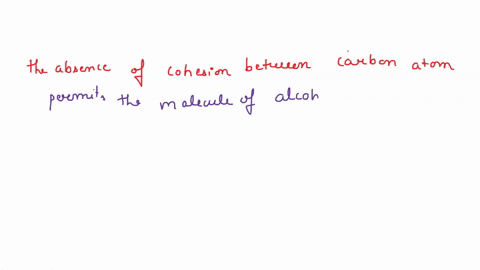 the absence of cohesion between carbon atom
permits the molecule of alcoh